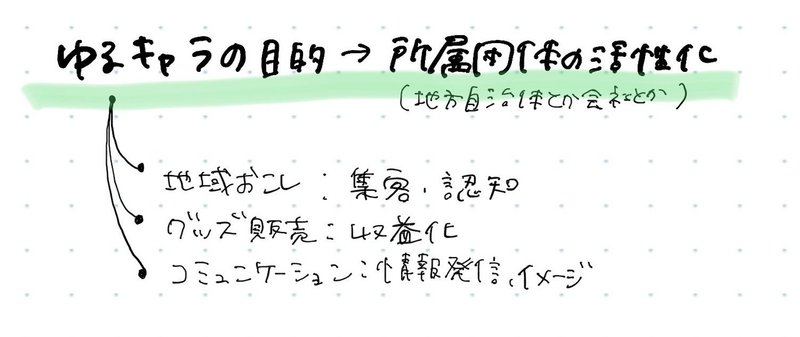 ゆるキャラの目的→所属団体の活性化
(地方自治体とか会社とか)
地域おこし：集客・認知
グッズ販売：収益化
コミュニケーション：情報発信、イメージ